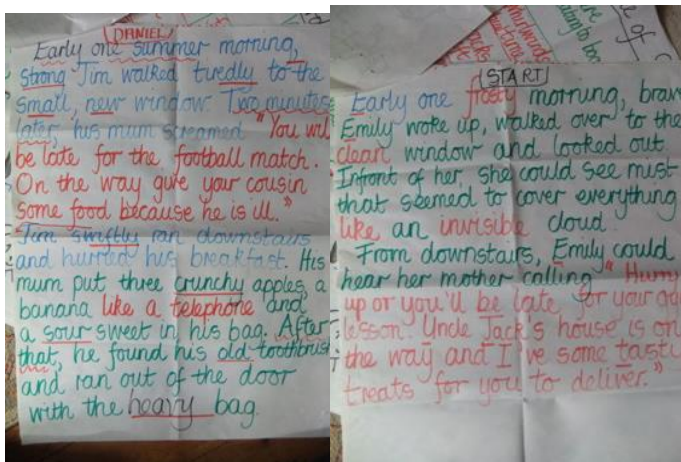 DANIEL
Early one summer morning,
strong Jim walked tiredly to the
small, new window. Two minutes
later, his mum screamed "You will
be late for the football match.
On the way give your cousin
some food because he is ill."
Jim swiftly ran downstairs
and hurried his breakfast. His
mum put three crunchy apples, a
banana like a telephone and
a sour sweet in his bag. After
that, he found his old toothbrush
and ran out of the door
with the heavy bag.
START
Early one frosty morning, brav
Emily woke up, walked over to the
clean window and looked out.
Infront of her, she could see mist
that seemed to cover everything
like an invisible cloud.
From downstairs, Emily could
hear her mother calling "Hurry
up or you'll be late for your
lesson. Uncle Jack's house is on
the way and I've some tasti
treats for you to deliver."